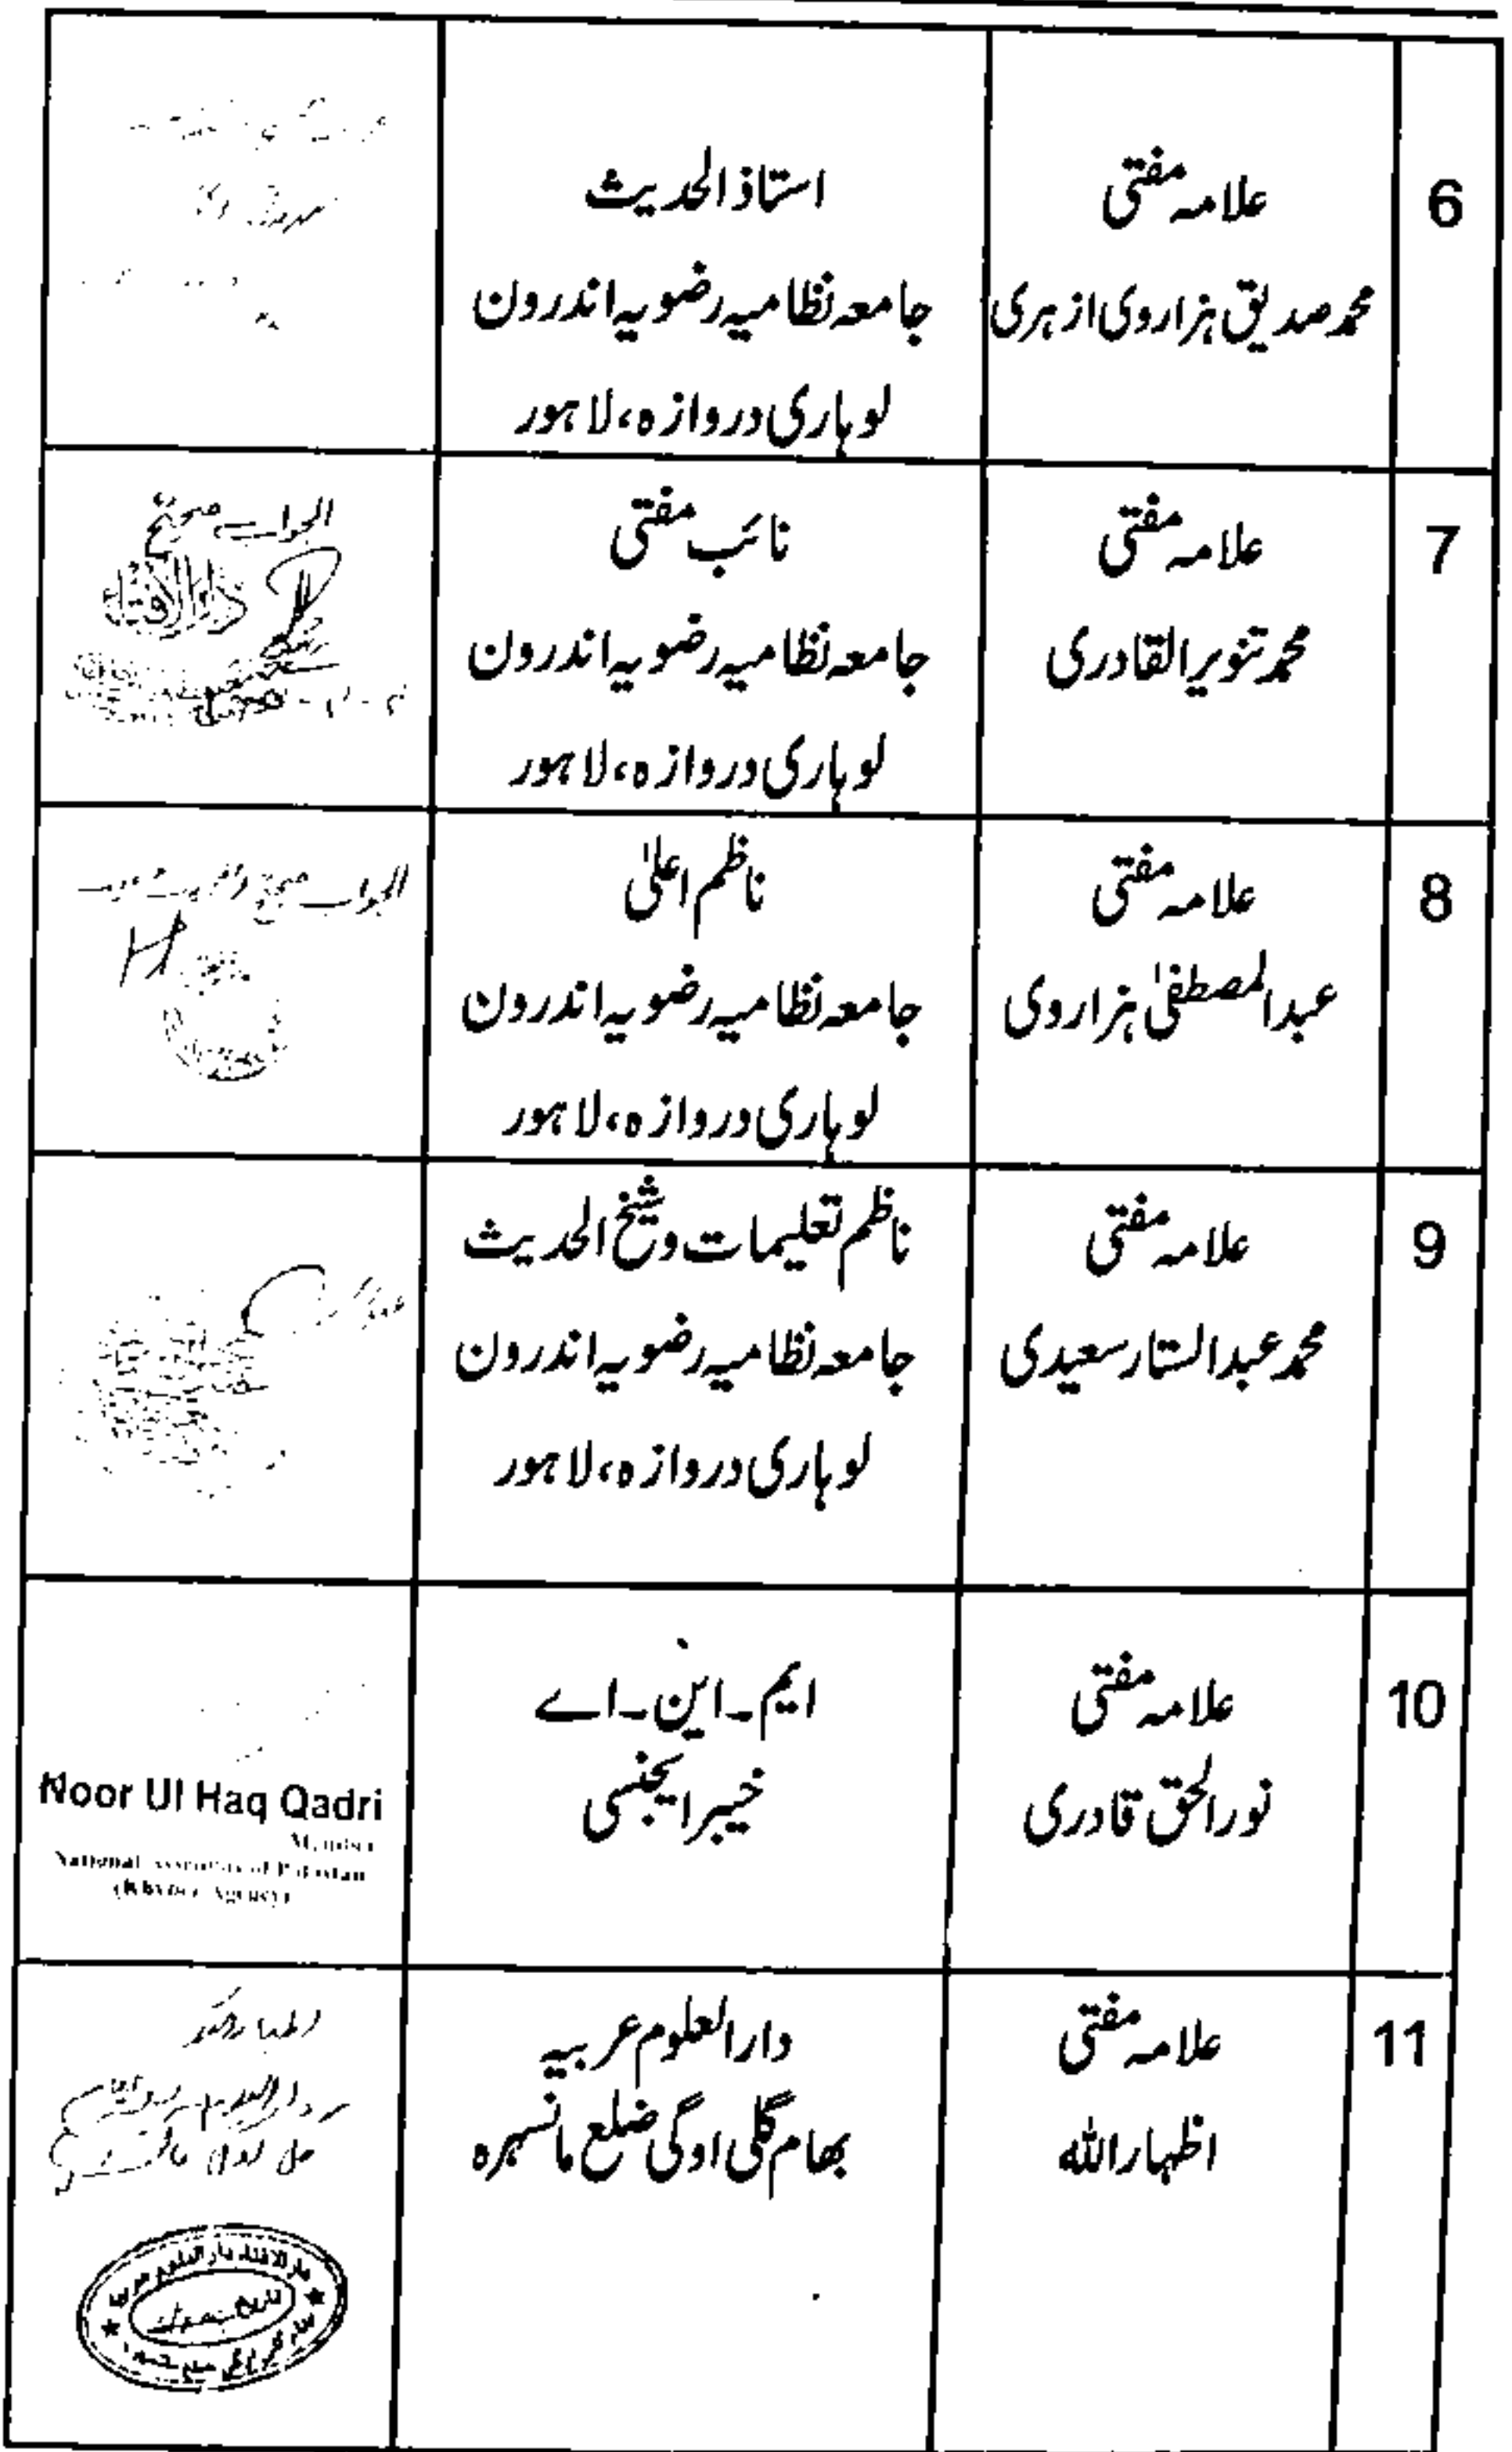 6
علامہ مفتی
محمد صدیق ہزاروی ازہری
استاذ الحدیث
جامعہ نظامیہ رضویہ اندرون
لوہاری دروازہ، لاہور
7
علامہ مفتی
محمد تنویر القادری
نائب مفتی
جامعہ نظامیہ رضویہ اندرون
لوہاری دروازہ، لاہور
الجواب صحیح
دارالافتاء
8
علامہ مفتی
عبدالمصطفیٰ ہزاروی
ناظم اعلیٰ
جامعہ نظامیہ رضویہ اندرون
لوہاری دروازہ، لاہور
الجواب صحیح
9
علامہ مفتی
محمد عبدالستار سعیدی
ناظم تعلیمات و شیخ الحدیث
جامعہ نظامیہ رضویہ اندرون
لوہاری دروازہ، لاہور
10
علامہ مفتی
نورالحق قادری
ایم ۔ این ۔ اے
خیبر ایجنسی
Noor Ul Haq Qadri
Member
National Assembly of Pakistan
(Khyber Agency)
11
علامہ مفتی
اظہار اللہ
دارالعلوم عربیہ
بھام گلی اوگی ضلع مانسہرہ